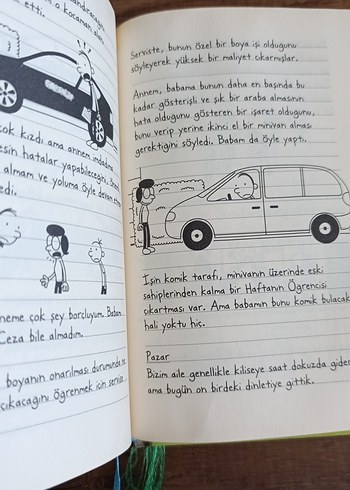 a kocaman
etti.
çok kızdı ama annem
hatalar yapabileceğini,
almam ve yoluma öyle devam
çok şey borçluyum.
Ceza bile almadım.
boyanın onarılması durumunda
çıkacağını öğrenmek için
Serviste, bunun özel bir boya işi olduğunu
söyleyerek yüksek bir maliyet çıkarmışlar.
Annem, babama bunun daha en başında bu
kadar gösterişli ve şık bir araba almasının
hata olduğunu gösteren bir işaret olduğunu,
bunu verip yerine ikinci el bir minivan alması
gerektiğini söyledi. Babam da öyle yaptı.
İşin komik tarafı, minivanın üzerinde eski
sahiplerinden kalma bir Haftanın Öğrencisi
çıkartması var. Ama babamın bunu komik bulacak
hali yoktu hiç.
Pazar
Bizim aile genellikle kiliseye saat dokuzda gider
ama bugün on birdeki dinletiye gittik.